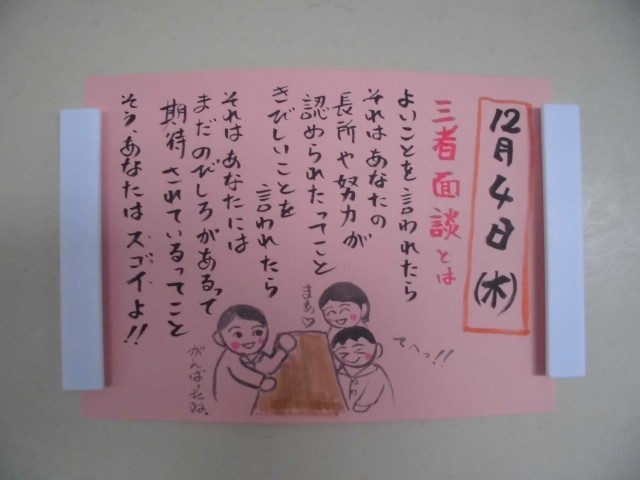 12月4日(木)
三者面談とは
よいことを言われたら
それはあなたの
長所や努力が
認められたってこと
きびしいことを
言われたら
それはあなたには
まだのびしろがあるって
期待されているってこと
そう、あなたはスゴイよ!!
まあ♡
てへっ!!
がんばったね。